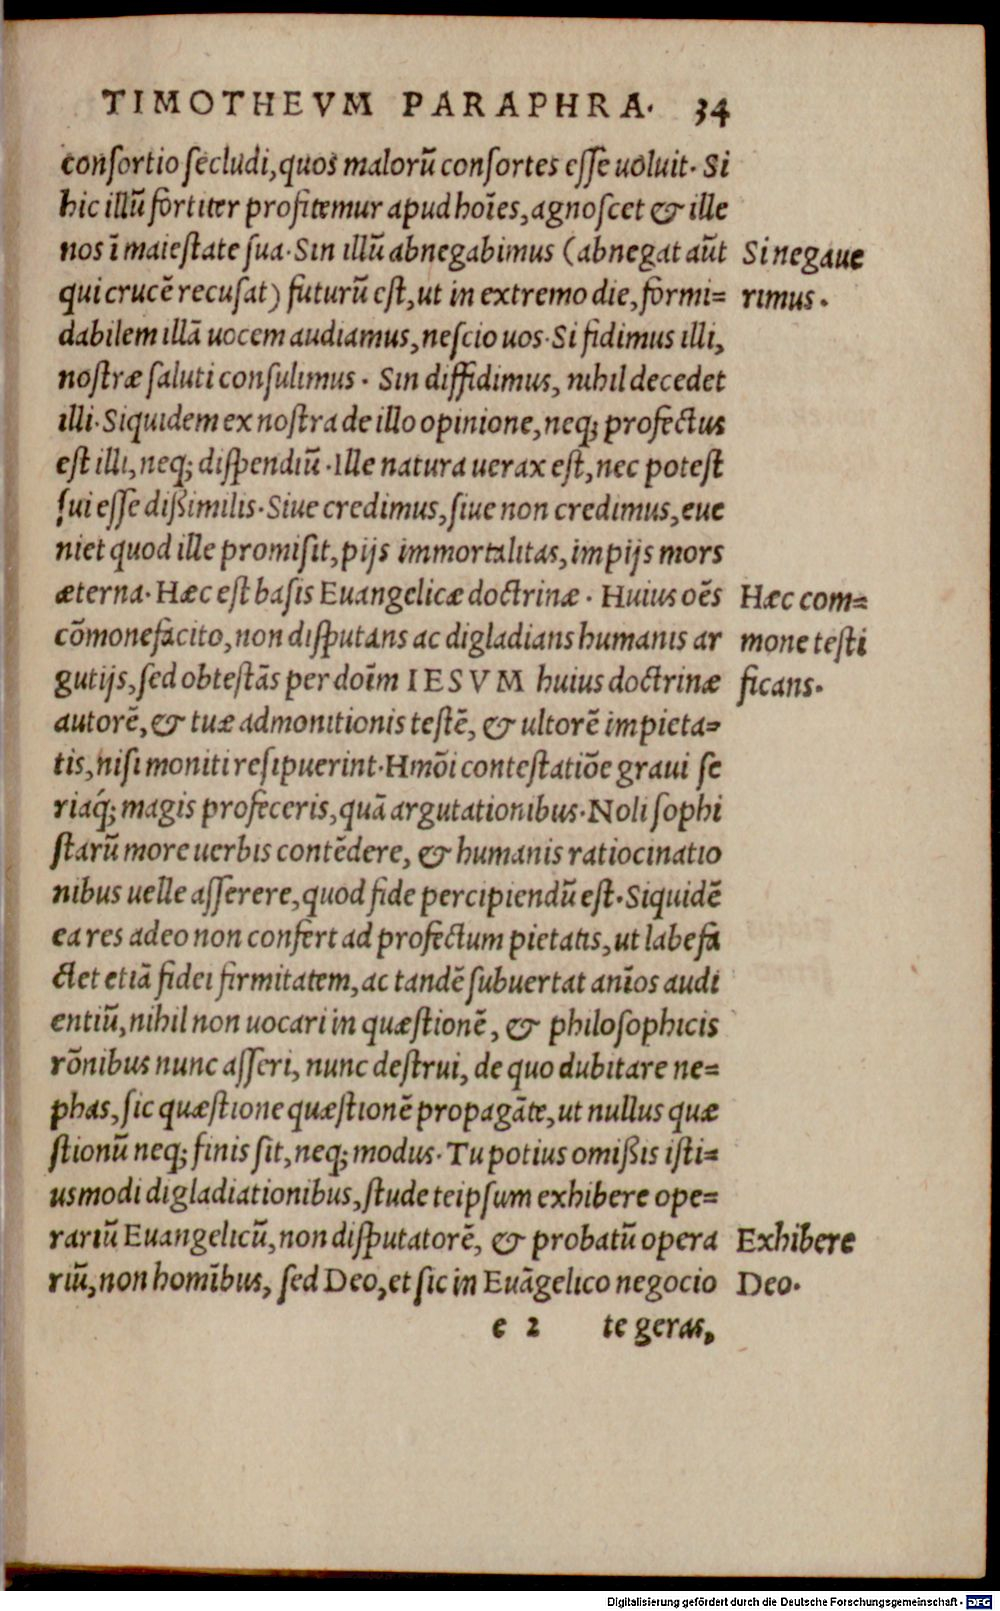 TIMOTHEVM PARAPHRA. 34
conſortio ſecludi, quos malorũ conſortes eſſe uoluit. Si
hic illũ fortiter profitemur apud hoĩes, agnoſcet & ille
nos ĩ maieſtate ſua. Sin illũ abnegabimus (abnegat aũt
qui crucẽ recuſat) futurũ eſt, ut in extremo die, formi=
dabilem illã uocem audiamus, neſcio uos. Si fidimus illi,
noſtræ ſaluti conſulimus. Sin diffidimus, nihil decedet
illi. Siquidem ex noſtra de illo opinione, neq; profectus
eſt illi, neq; diſpendiũ. Ille natura uerax eſt, nec poteſt
ſui eſſe dißimilis. Siue credimus, ſiue non credimus, eue
niet quod ille promiſit, pijs immortalitas, impijs mors
æterna. Hæc eſt baſis Euangelicæ doctrinæ. Huius oẽs
cõmonefacito, non diſputans ac digladians humanis ar
gutijs, ſed obteſtãs per doĩm IESVM huius doctrinæ
autorẽ, & tuæ admonitionis teſtẽ, & ultorẽ impieta=
tis, niſi moniti reſipuerint. Hmõi conteſtatiõe graui ſe
riaq́; magis profeceris, quã argutationibus. Noli ſophi
ſtarũ more uerbis contẽdere, & humanis ratiocinatio
nibus uelle aſſerere, quod fide percipiendũ eſt. Siquidẽ
ea res adeo non confert ad profectum pietatis, ut labefa
ctet etiã fidei firmitatem, ac tandẽ ſubuertat anĩos audi
entiũ, nihil non uocari in quæſtionẽ, & philoſophicis
rõnibus nunc aſſeri, nunc deſtrui, de quo dubitare ne=
phas, ſic quæſtione quæſtionẽ propagãte, ut nullus quæ
ſtionũ neq; finis ſit, neq; modus. Tu potius omißis iſti=
usmodi digladiationibus, ſtude teipſum exhibere ope=
rariũ Euangelicũ, non diſputatorẽ, & probatũ opera
riũ, non homĩbus, ſed Deo, et ſic in Euãgelico negocio
e 2 te geras,
Si negaue
rimus.
Hæc com=
mone teſti
ficans.
Exhibere
Deo.
Digitalisierung gefördert durch die Deutsche Forschungsgemeinschaft - DFG